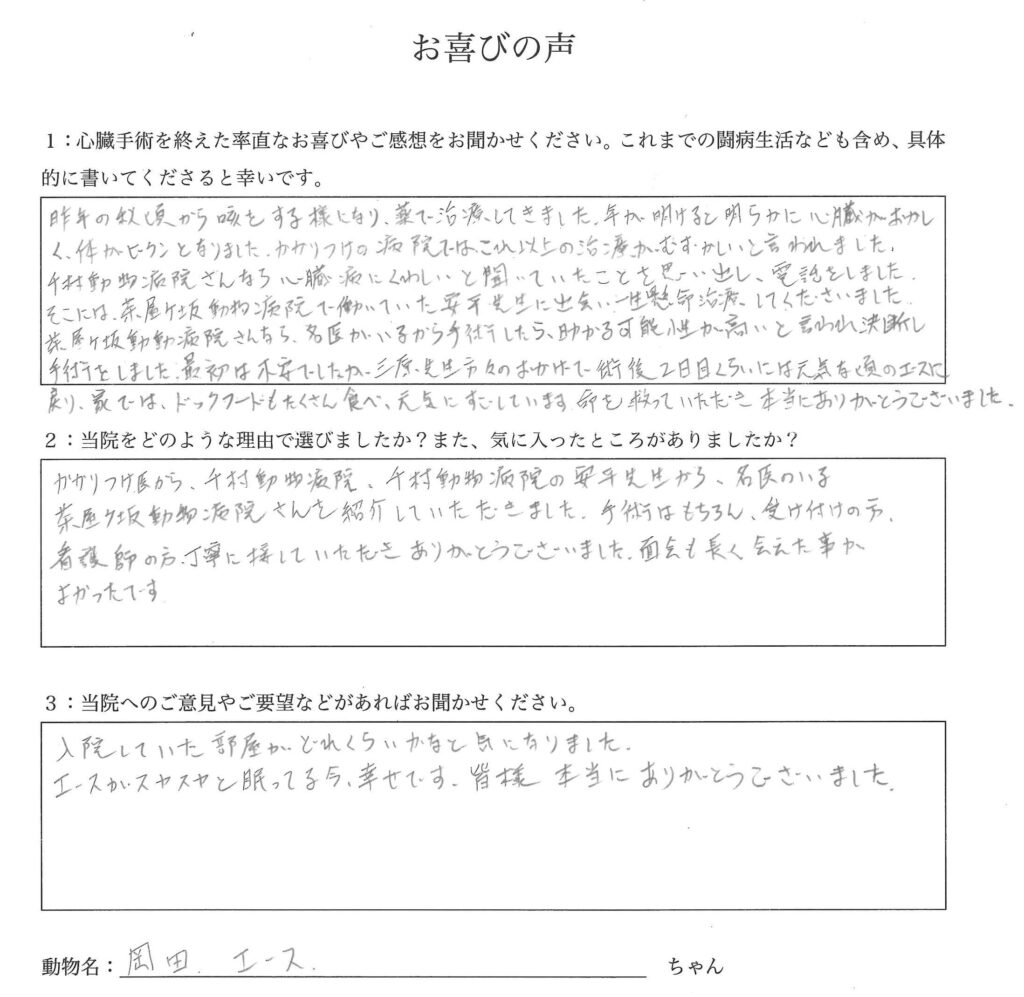 お喜びの声
1：心臓手術を終えた率直なお喜びやご感想をお聞かせください。これまでの闘病生活なども含め、具体
的に書いてくださると幸いです。
昨年の秋頃から咳をする様になり、薬で治療してきました。年が明けると明らかに心臓がおかし
く、体がビクンとなりました。かかりつけの病院ではこれ以上の治療がむずかしいと言われました。
千村動物病院さんなら心臓病にくわしいと聞いていたことを思い出し、電話をしました。
そこには、茶屋ケ坂動物病院で働いていた安平先生に出会い一生懸命治療してくださいました。
茶屋ケ坂動動病院さんなら、名医がいるから手術したら、助かる可能性が高いと言われ決断し
手術をしました。最初は不安でしたが、三原先生方々のおかげで術後2日目くらいには元気な頃のエースに
戻り、家では、ドックフードもたくさん食べ、元気にすごしています。命を救っていただき本当にありがとうございました。
2：当院をどのような理由で選びましたか？また、気に入ったところがありましたか？
かかりつけ医から、千村動物病院、千村動物病院の安平先生から、名医のいる
茶屋ケ坂動物病院さんを紹介していただきました。手術はもちろん、受け付けの方、
看護師の方、丁寧に接していただきありがとうございました。面会も長く会えた事が
よかったです
3：当院へのご意見やご要望などがあればお聞かせください。
入院していた部屋がどれくらいかなと気になりました。
エースがスヤスヤと眠ってる今、幸せです。皆様 本当にありがとうございました。
動物名：岡田 エース ちゃん